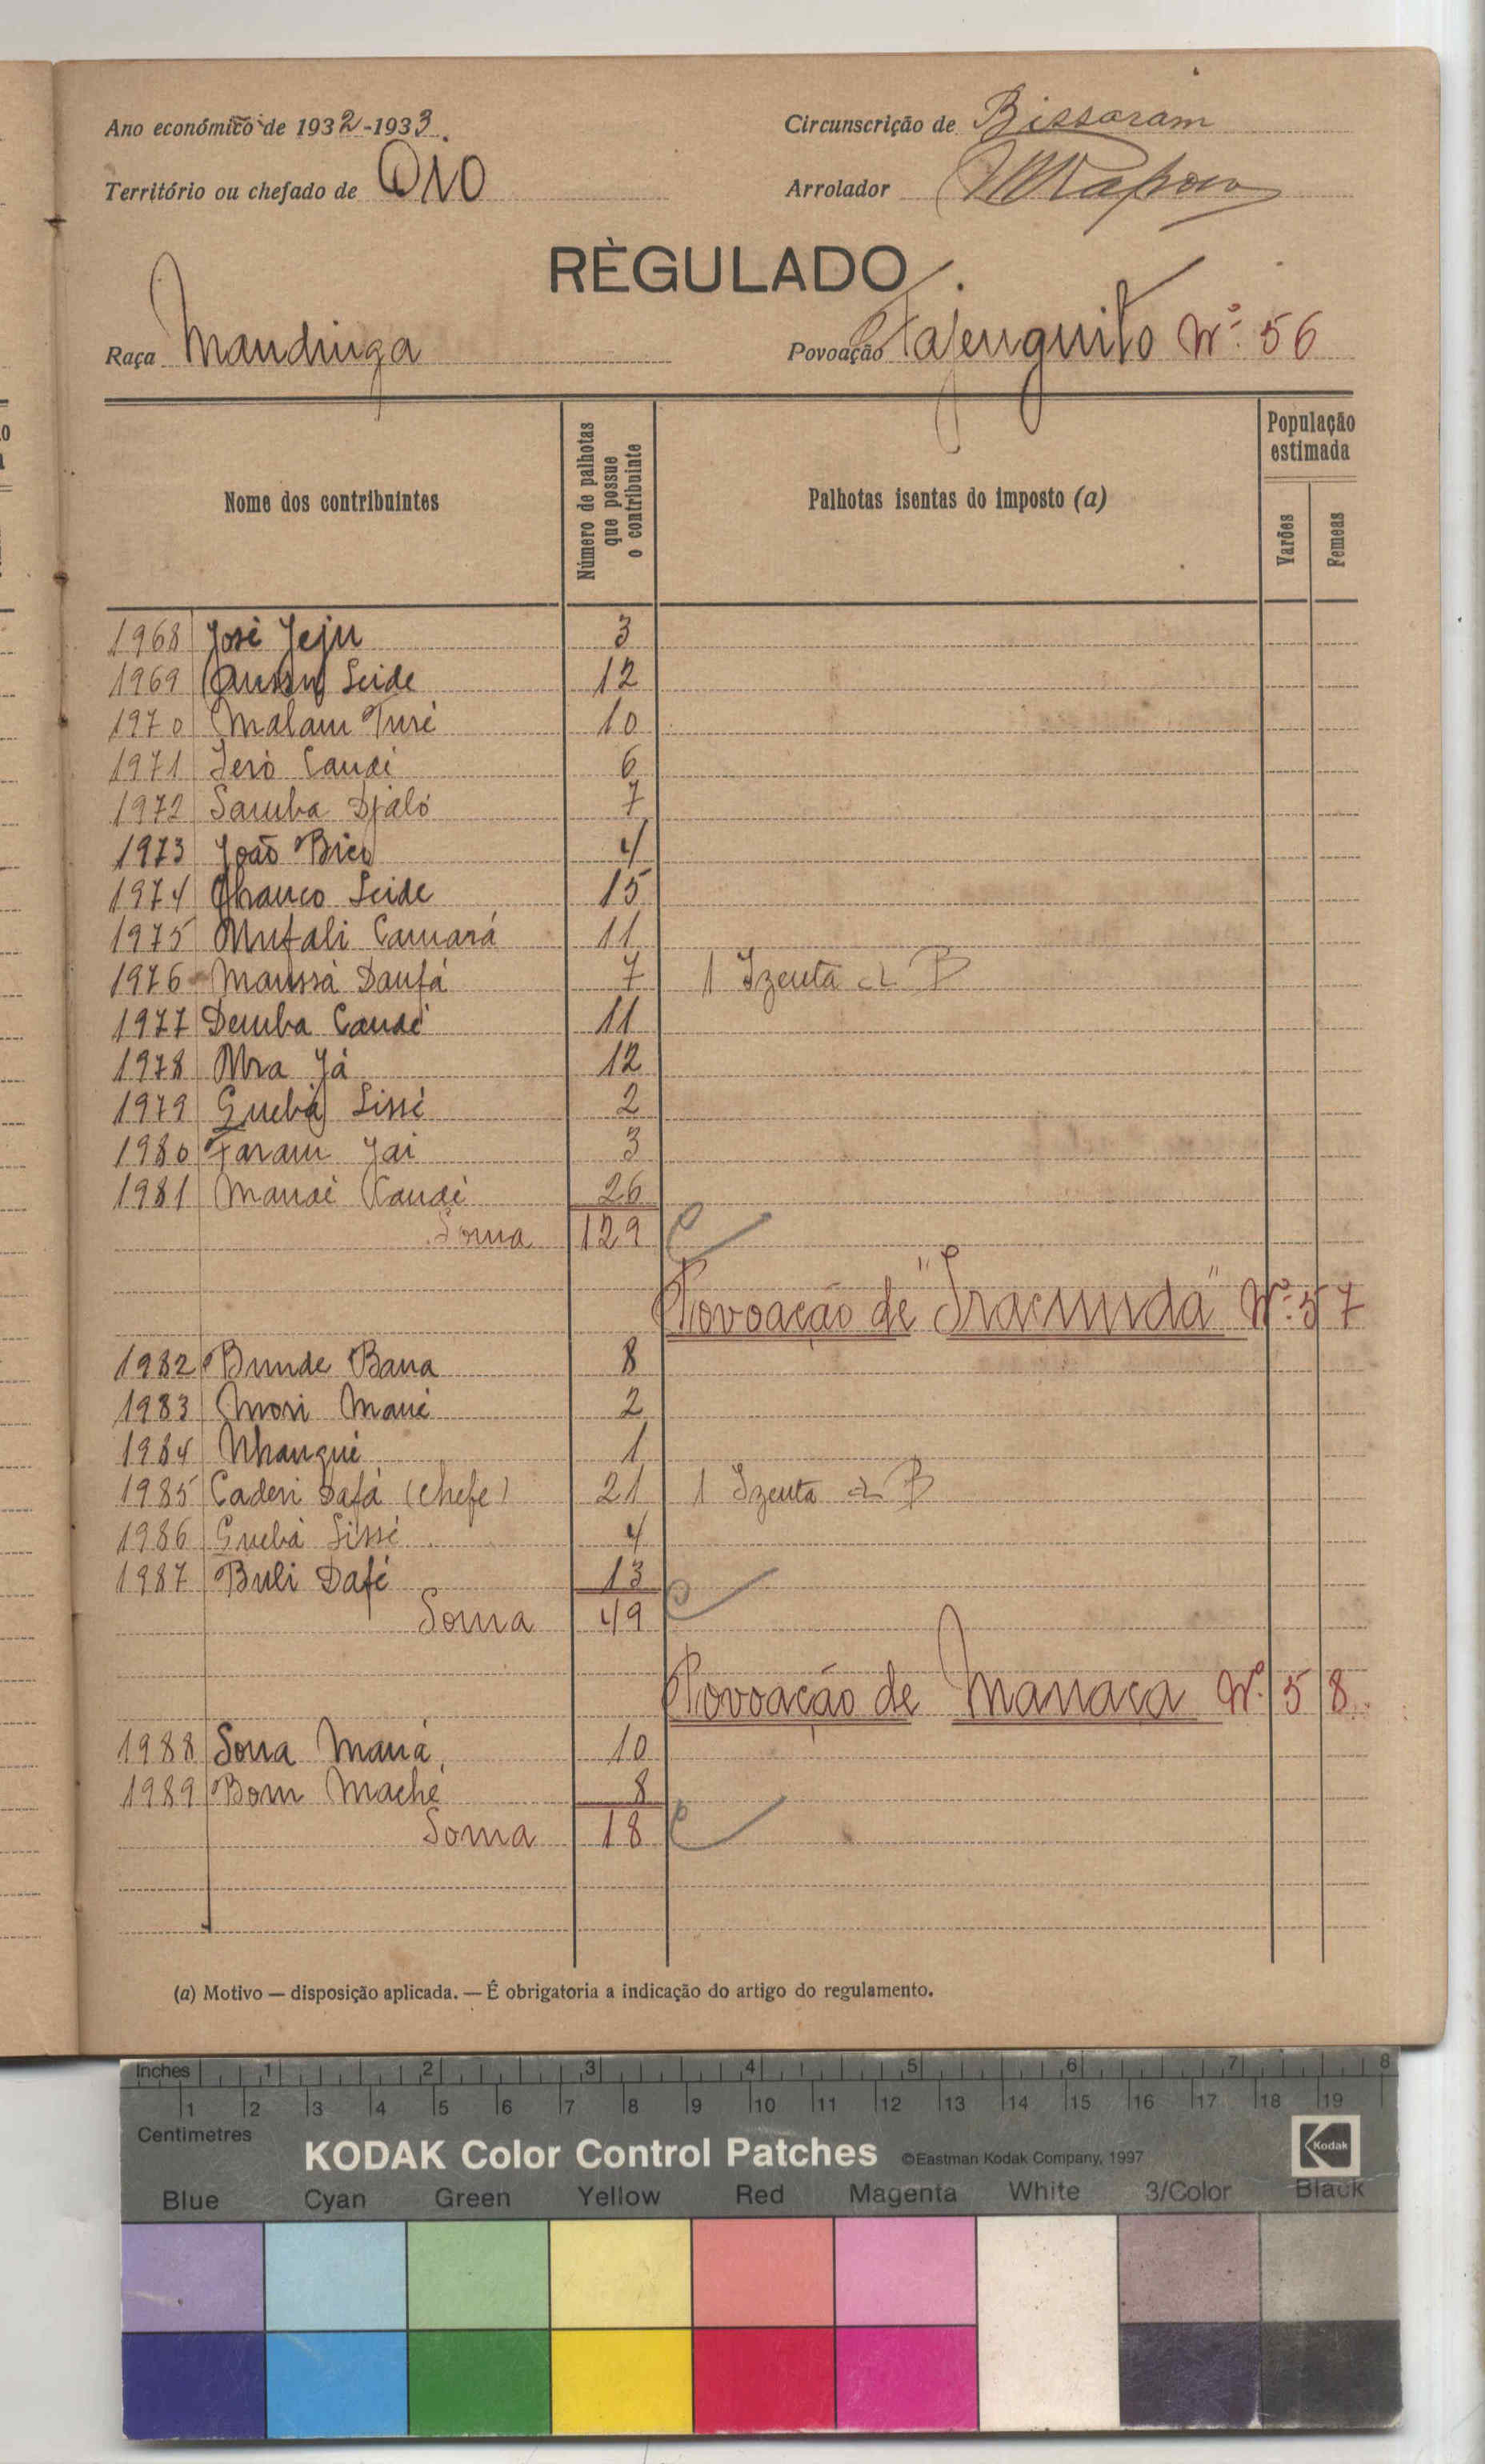 Ano económico de 1932-1933.
Circunscrição de Bissoram
Território ou chefado de Oio
Arrolador
RÈGULADO
Raça Mandinga
Povoação Tajenguito Nº 56
Nome dos contribuintes
Número de palhotas que possue o contribuinte
Palhotas isentas do imposto (a)
População estimada
Varões
Femeas
1968 José Jeju 3
1969 Seide 12
1970 Malam Turé 10
1971 Jeró Candé 6
1972 Samba Djaló 7
1973 João 4
1974 Seide 15
1975 Mutali Camará 11
1976 Maussá Danfá 7 1 Izenta B
1977 Demba Candé 11
1978 12
1979 Guebá Sissé 2
1980 Faram Jai 3
1981 Mandé Candé 26
Soma 129
Povoação de "Iracunda" Nº 57
1982 Bunde Bana 8
1983 Mori Mané 2
1984 Nhangué 1
1985 Caderi Dafá (chefe) 21 1 Izenta B
1986 Guebá Sissé 4
1987 Buli Dafé 13
Soma 49
Povoação de Manaca Nº 58
1988 Sona Maná 10
1989 Bom Maché 8
Soma 18
(a) Motivo — disposição aplicada. — É obrigatoria a indicação do artigo do regulamento.
Inches 1 2 3 4 5 6 7 8
1 2 3 4 5 6 7 8 9 10 11 12 13 14 15 16 17 18 19
Centimetres
KODAK Color Control Patches ©Eastman Kodak Company, 1997 Kodak
Blue Cyan Green Yellow Red Magenta White 3/Color Black